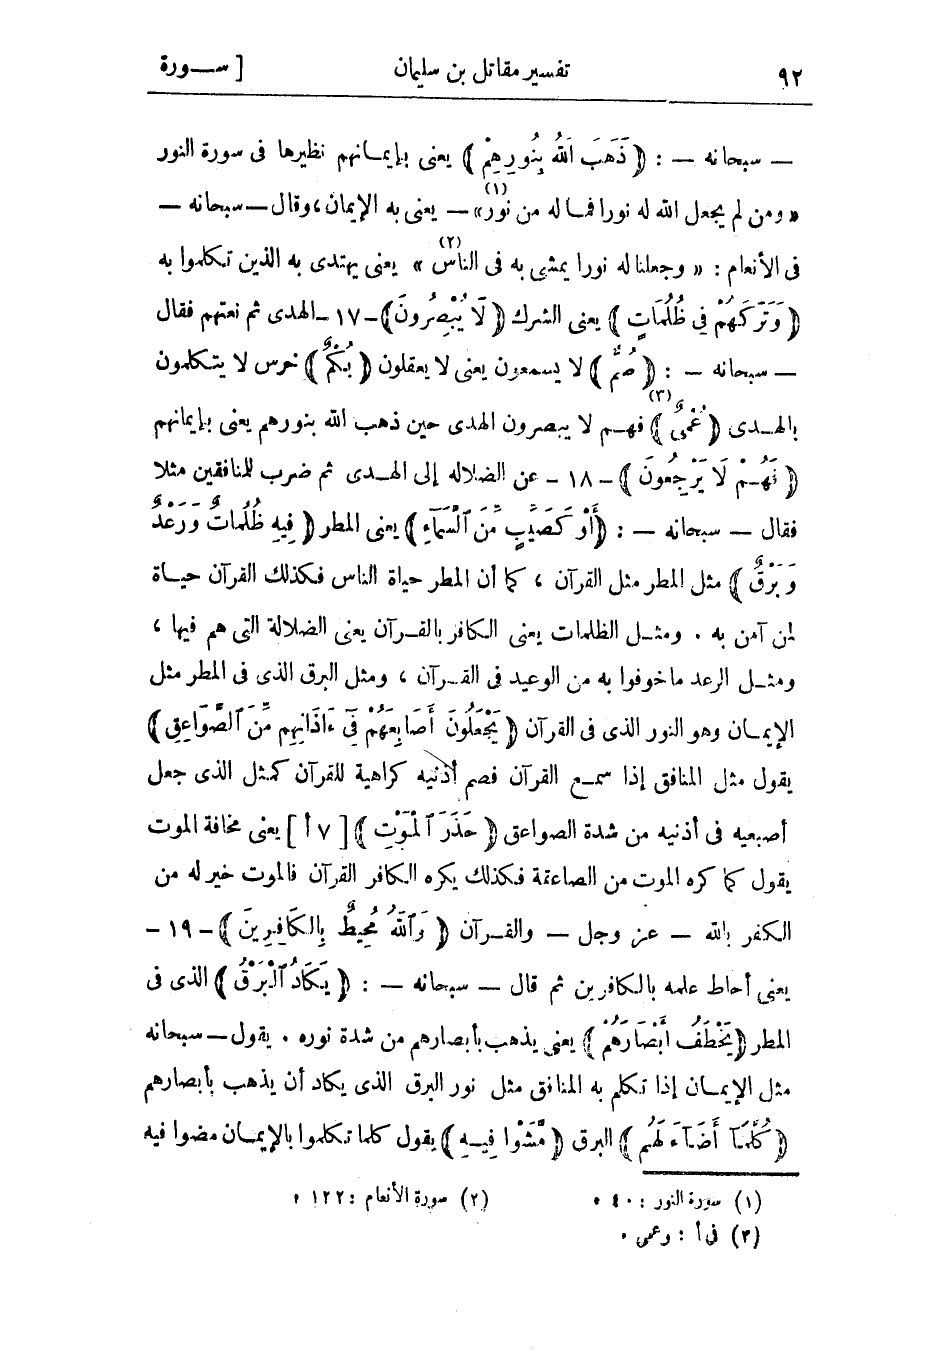 ٩٢ تفسير مقاتل بن سليمان [ ســورة
— سبحانه — : ﴿ ذَهَبَ اللهُ بِنُورِهِمْ ﴾ يعنى بإيمـانهم نظيرها فى سورة النور
« ومن لم يجعل الله له نورا فمـا له من نور(١)» — يعنى به الإيمان ، وقال — سبحانه —
فى الأنعام : « وجعلنا له نورا يمشى به فى الناس(٢) » يعنى يهتدى به الذين تكلموا به
﴿ وَتَرَكَهُمْ فِى ظُلُمَاتٍ ﴾ يعنى الشرك ﴿ لَا يُبْصِرُونَ﴾ – ١٧ – الهدى ثم نعتهم فقال
— سبحانه — : ﴿ صُمٌّ ﴾ لا يسمعون يعنى لا يعقلون ﴿ بُكْمٌ ﴾ خرس لا يتكلمون
بالهـدى ﴿ عُمْىٌ(٣) ﴾ فهـم لا يبصرون الهدى حين ذهب الله بنورهم يعنى بإيمانهم
﴿ فَهُـمْ لَا يَرْجِعُونَ ﴾ – ١٨ – عن الضلاله إلى الهـدى ثم ضرب للمنافقين مثلا
فقال — سبحانه — : ﴿أَوْ كَصَيِّبٍ مِّنَ ٱلسَّمَآءِ ﴾ يعنى المطر ﴿ فِيهِ ظُلُمَاتٌ وَرَعْدٌ
وَبَرْقٌ ﴾ مثل المطر مثل القرآن ، كما أن المطر حياة الناس فكذلك القرآن حيـاة
لمن آمن به . ومثـل الظلمات يعنى الكافر بالقـرآن يعنى الضلالة التى هم فيها ،
ومثـل الرعد ما خوفوا به من الوعيد فى القـرآن ، ومثل البرق الذى فى المطر مثل
الإيمـان وهو النور الذى فى القرآن ﴿ يَجْعَلُونَ أَصَابِعَهُمْ فِىٓ ءَاذَانِهِم مِّنَ ٱلصَّوَاعِقِ ﴾
يقول مثل المنافق إذا سمـع القرآن فصم أذنيه كراهية للقرآن كمثل الذى جعل
أصبعيه فى أذنيه من شدة الصواعق ﴿ حَذَرَ ٱلْمَوْتِ ﴾ [ ٧ أ ] يعنى مخافة الموت
يقول كما كره الموت من الصاعقة فكذلك يكره الكافر القرآن فالموت خير له من
الكفر بالله — عز وجل — والقـرآن ﴿ وَٱللهُ مُحِيطٌ بِالكَافِرِينَ ﴾ – ١٩ –
يعنى أحاط علمه بالكافرين ثم قال — سبحانه — : ﴿ يَكَادُ ٱلْبَرْقُ ﴾ الذى فى
المطر ﴿ يَخْطَفُ أَبْصَارَهُمْ ﴾ يعنى يذهب بأبصارهم من شدة نوره . يقول — سبحانه
مثل الإيمـان إذا تكلم به المنافق مثل نور البرق الذى يكاد أن يذهب بأبصارهم
﴿ كُلَّمَآ أَضَآءَ لَهُم ﴾ البرق ﴿ مَّشَوْا فِيـهِ ﴾ يقول كلما تكلموا بالإيمـان مضوا فيه
(١) سورة النور : ٤٠ . (٢) سورة الأنعام : ١٢٢ .
(٣) فى أ : وعمى .